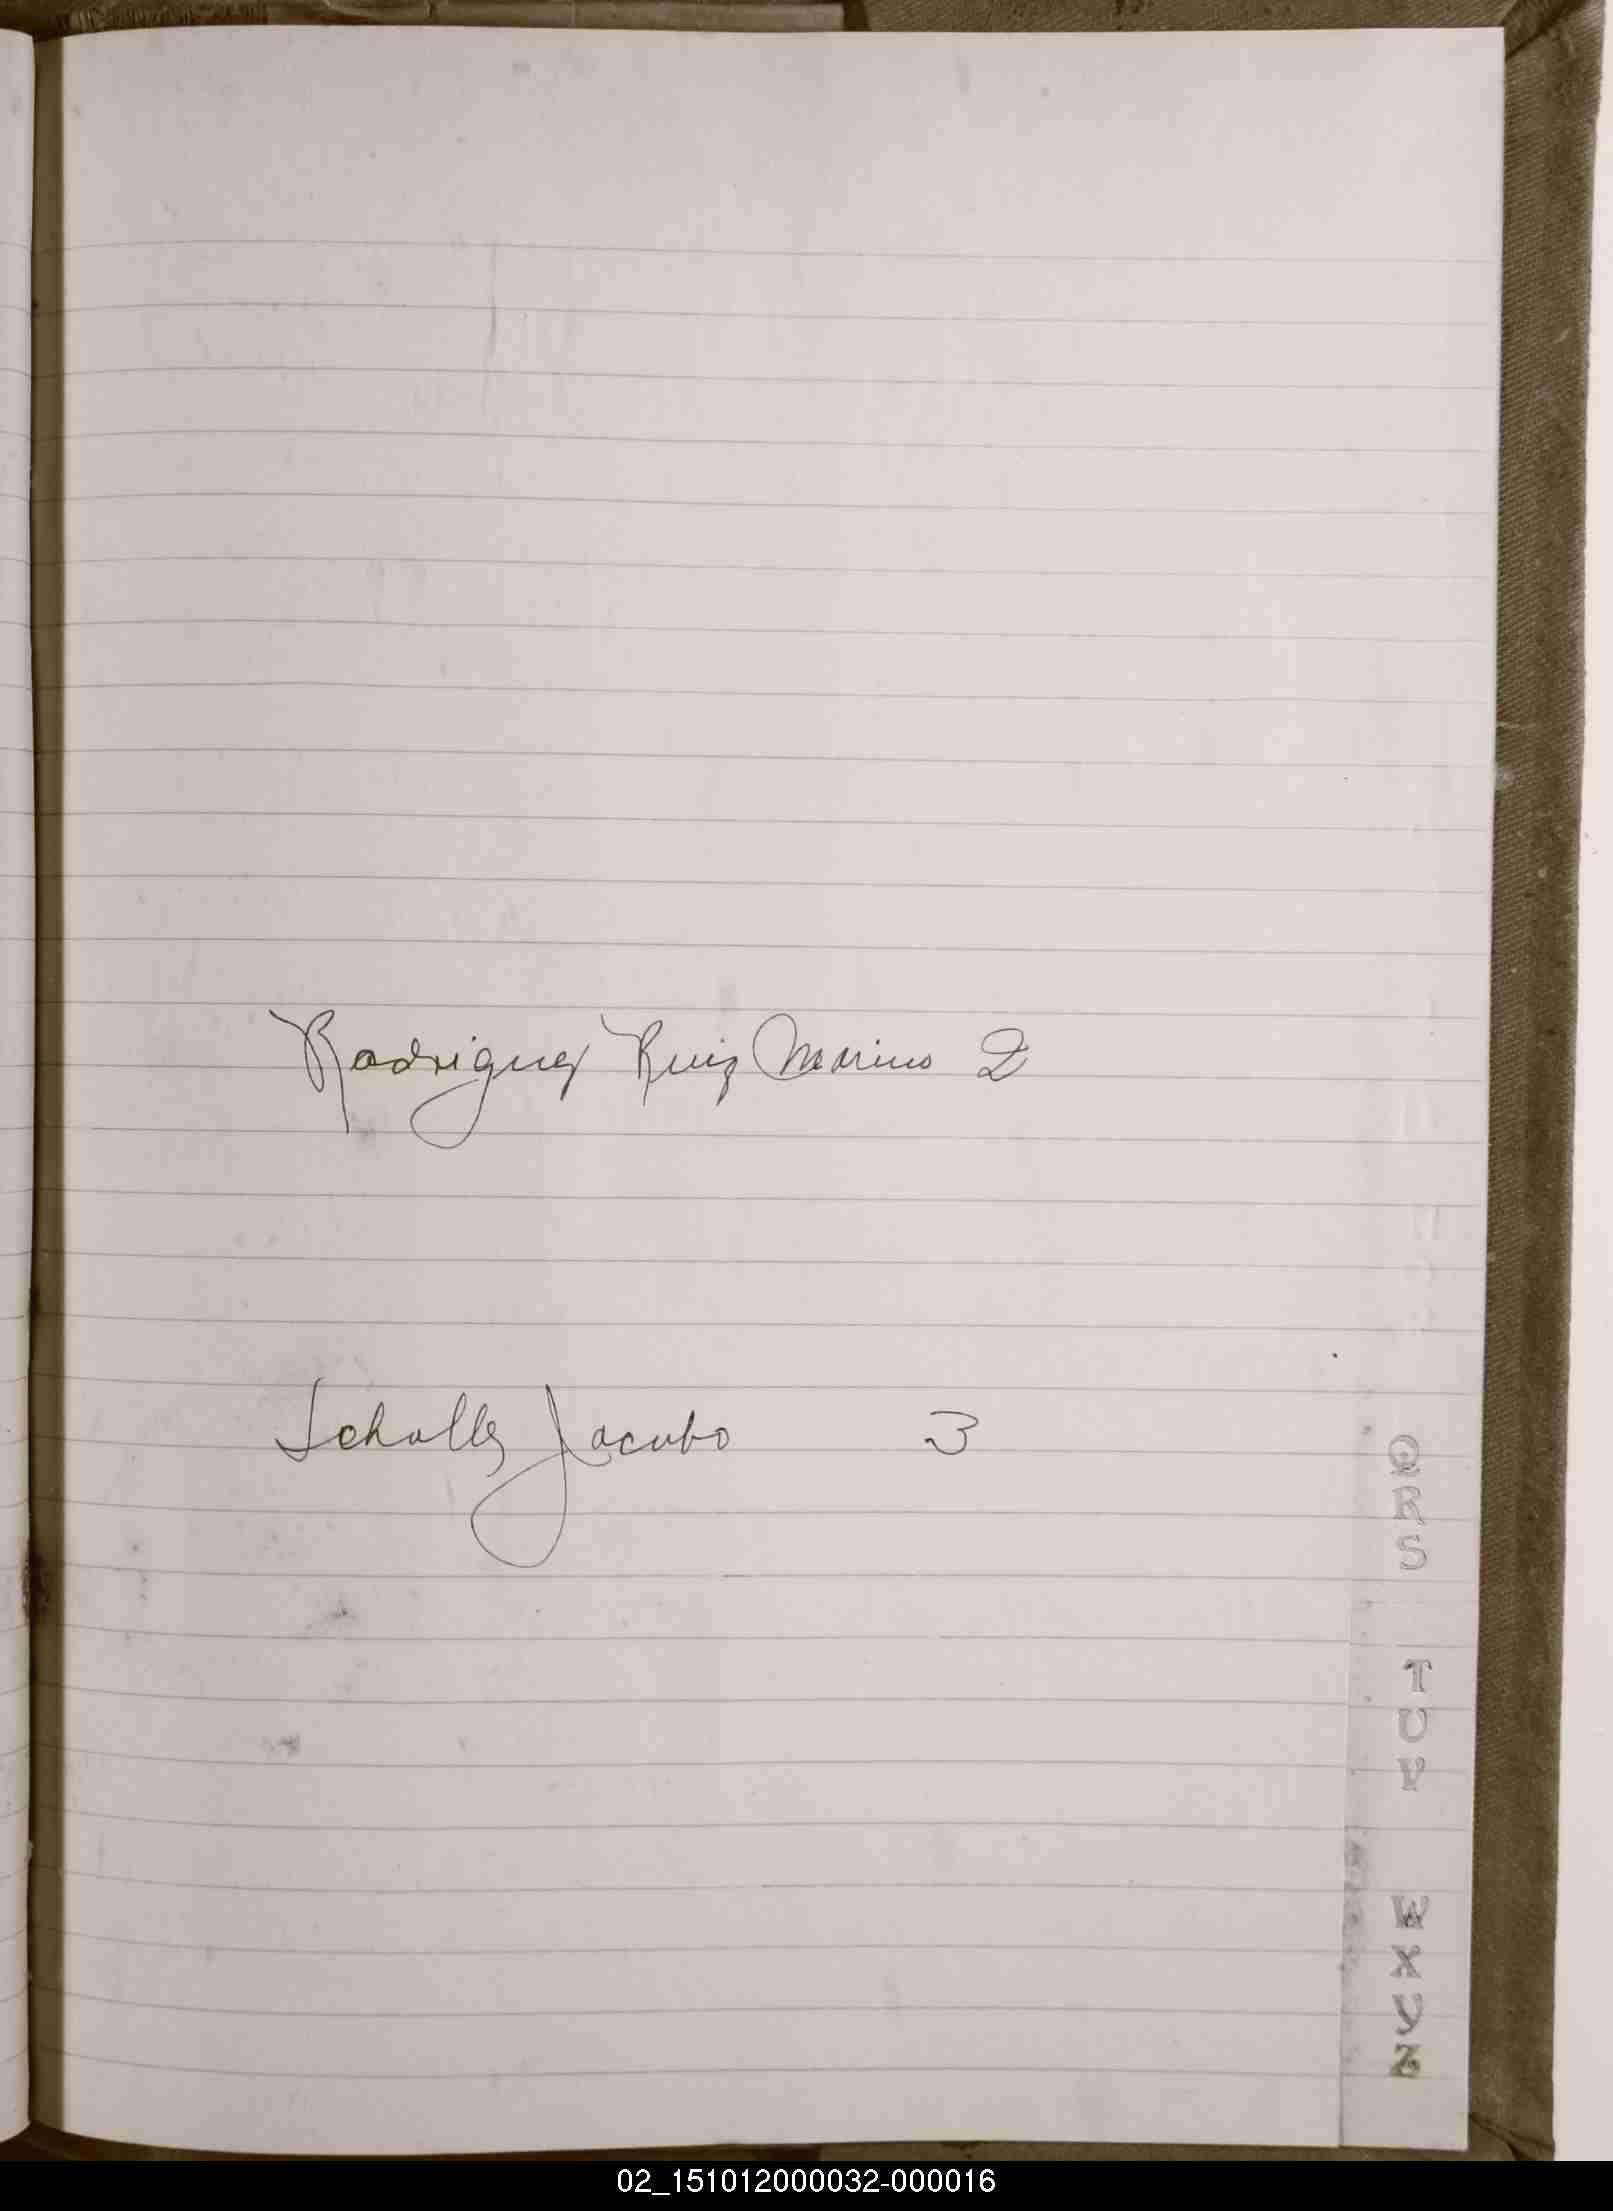 Rodriguez Ruiz Marino 2
Scholtz Jacobo 3
Q
R
S
T
U
V
W
X
Y
Z
02_151012000032-000016